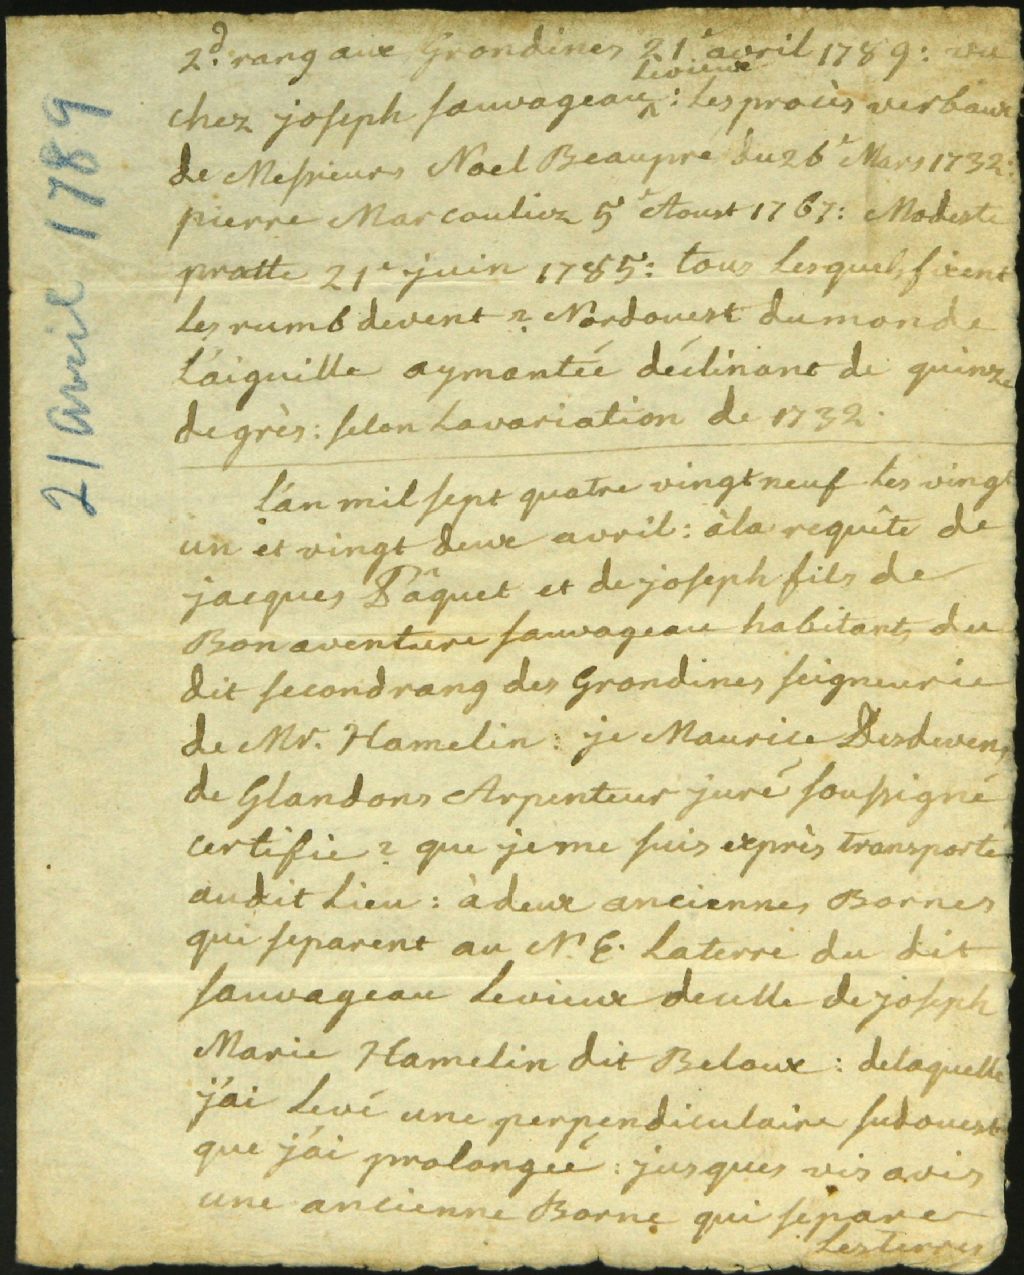 21 avril 1789
2d. rang aux Grondines 21e avril 1789: vu
chez joseph sauvageau levieux: les procès verbaux
de Messieurs Noel Beaupré du 26e Mars 1732:
pierre Marcouliez 5e Aoust 1767: Modeste
pratte 21e juin 1785: tous lesquels fixent
les rumb devent Nordouest du monde
l'aiguille aymantée déclinant de quinze
degrès: selon lavariation de 1732.
l'an mil sept quatre vingt neuf les vingt
un et vingt deux avril: àla requête de
jacques Pâquet et de joseph fils de
Bonaventure sauvageau habitants du
dit secondrang des Grondines seigneurie
de Mr. Hamelin: je Maurice Desdevens
de Glandons Arpenteur juré soussigné
certifie que jeme suis exprès transporté
audit lieu: àdeux anciennes Bornes
qui separent au N. E. laterre du dit
sauvageau levieux decelle de joseph
Marie Hamelin dit Beloux: delaquelle
j'ai levé une perpendiculaire sudouest
que j'ai prolongée: jusques vis avis
une ancienne Borne qui separe
lesterres